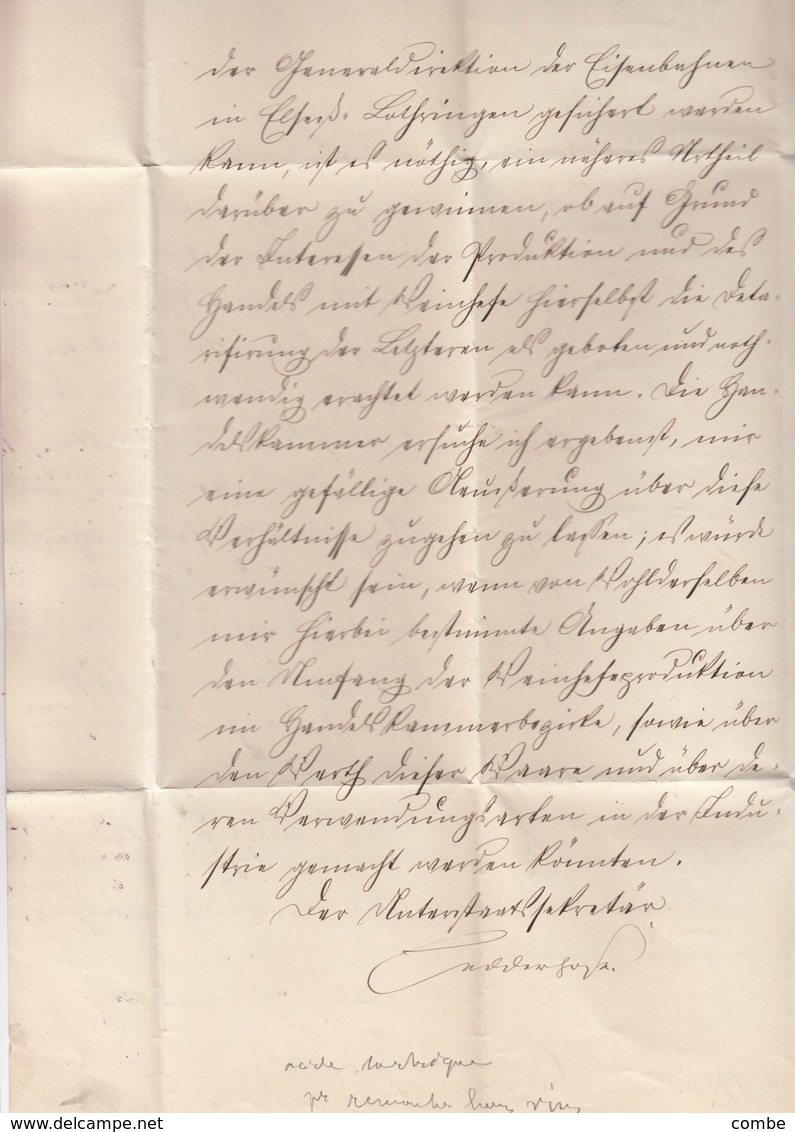 der Generaldirektion der Eisenbahnen
in Elsaß-Lothringen gesichert werden
kann, ist es nöthig, ein näheres Urtheil
darüber zu gewinnen, ob auf Grund
der Interessen der Produktion und des
Handels mit Weinhefe hierselbst die Deta-
rifirung der Letzteren als geboten und noth-
wendig erachtet werden kann. Die Han-
delskammer ersuche ich ergebenst, mir
eine gefällige Aeußerung über diese
Verhältnisse zugehen zu lassen; es würde
erwünscht sein, wenn von Wohlderselben
mir hierbei bestimmte Angaben über
den Umfang der Weinhefeproduktion
im Handelskammerbezirke, sowie über
den Werth dieser Waare und über de-
ren Verwendungsarten in der Indu-
strie gemacht werden könnten.
Der Unterstaatssekretär
Ledderhose.
acide tartrique
pr remonter leurs vins
combe
www.delcampe.net